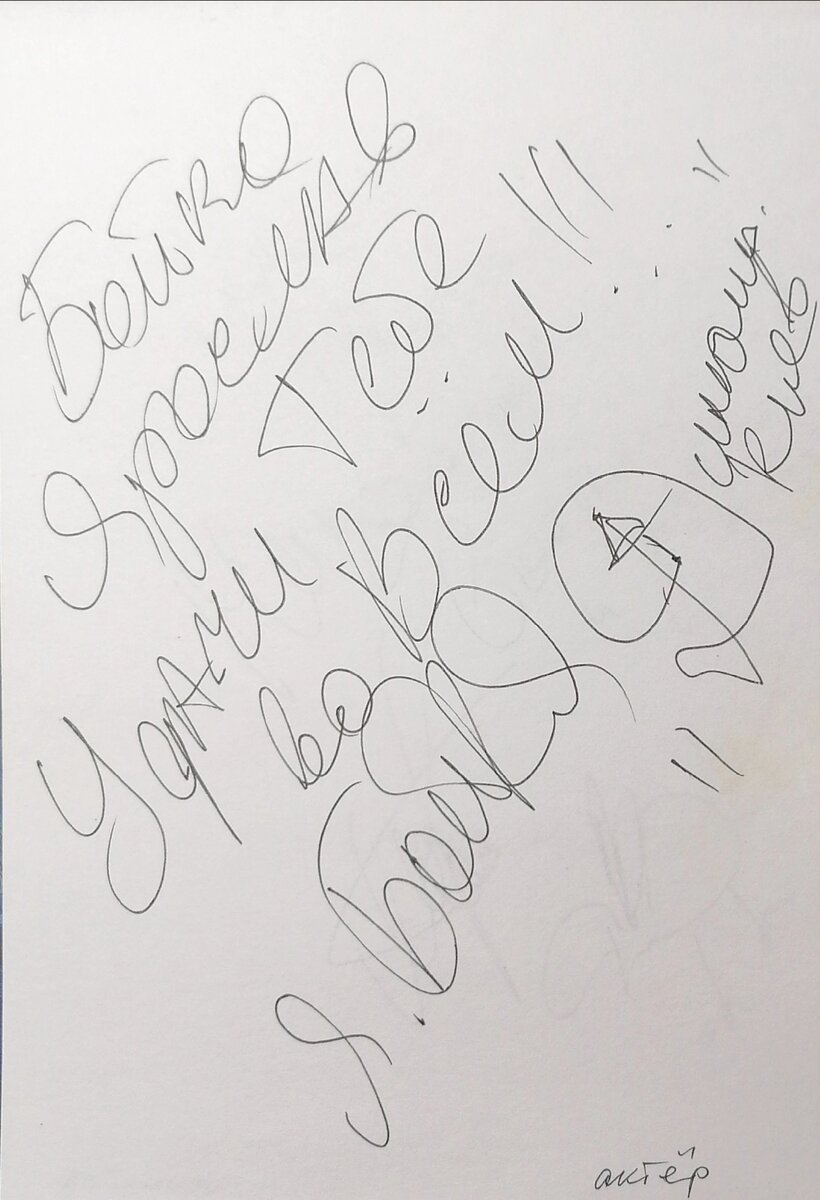 Бойко
Ярослав
Удачи Тебе
во Всём !!!
Я. Бойко
Киев
актёр